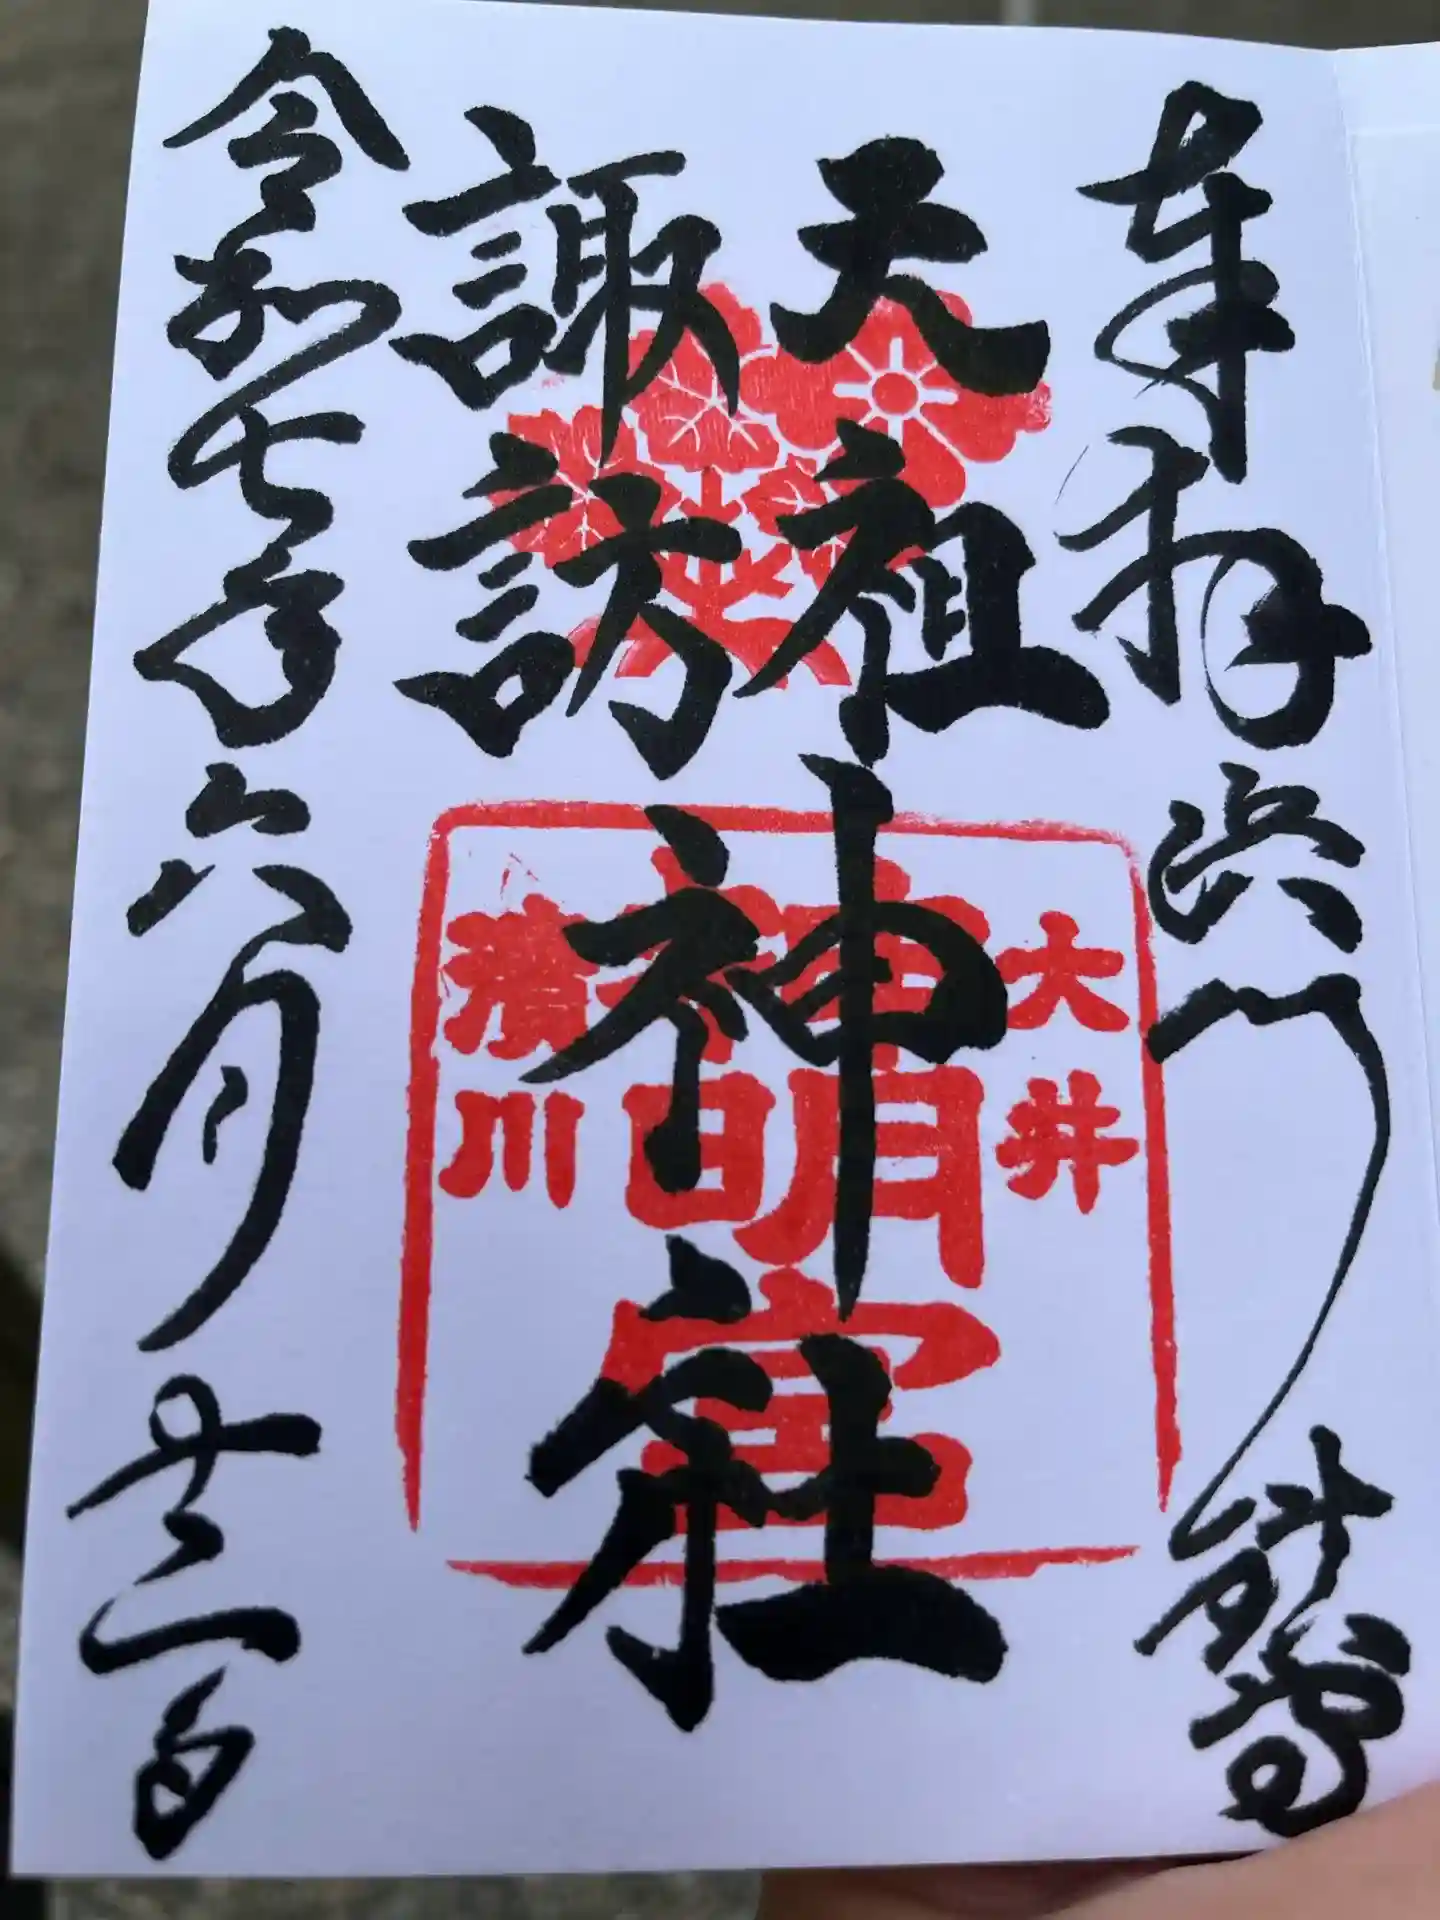 奉拝 浜川鎮守
天祖
諏訪
神社
令和七年六月廿一日
大井
神明宮
濱川